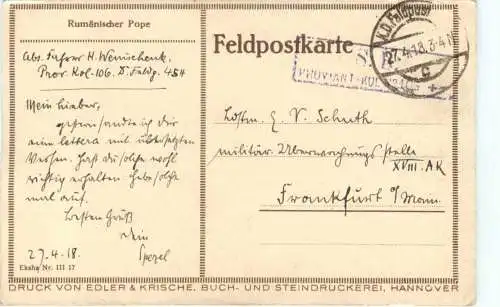 Rumänischer Pope
Abs. Fahrer H. Wenischenk.
Prov. Kol. 106. D. Feldp. 454
Mein Lieber,
gestern sandte ich dir
eine lettera mit übersetzten
Versen. Hast du solche wohl
richtig erhalten
mal auf.
Besten Gruß
dein
Spezel
27.4.18.
Eksha Nr. III 17
Feldpostkarte
K.D. Feldpost
27.4.18. 3-4 N
c
S.
PROVIANT-KOL
E. V. Scheith
militär. Überwachungsstelle
XVIII. AK
Frankfurt a/Main.
DRUCK VON EDLER & KRISCHE, BUCH- UND STEINDRUCKEREI, HANNOVER